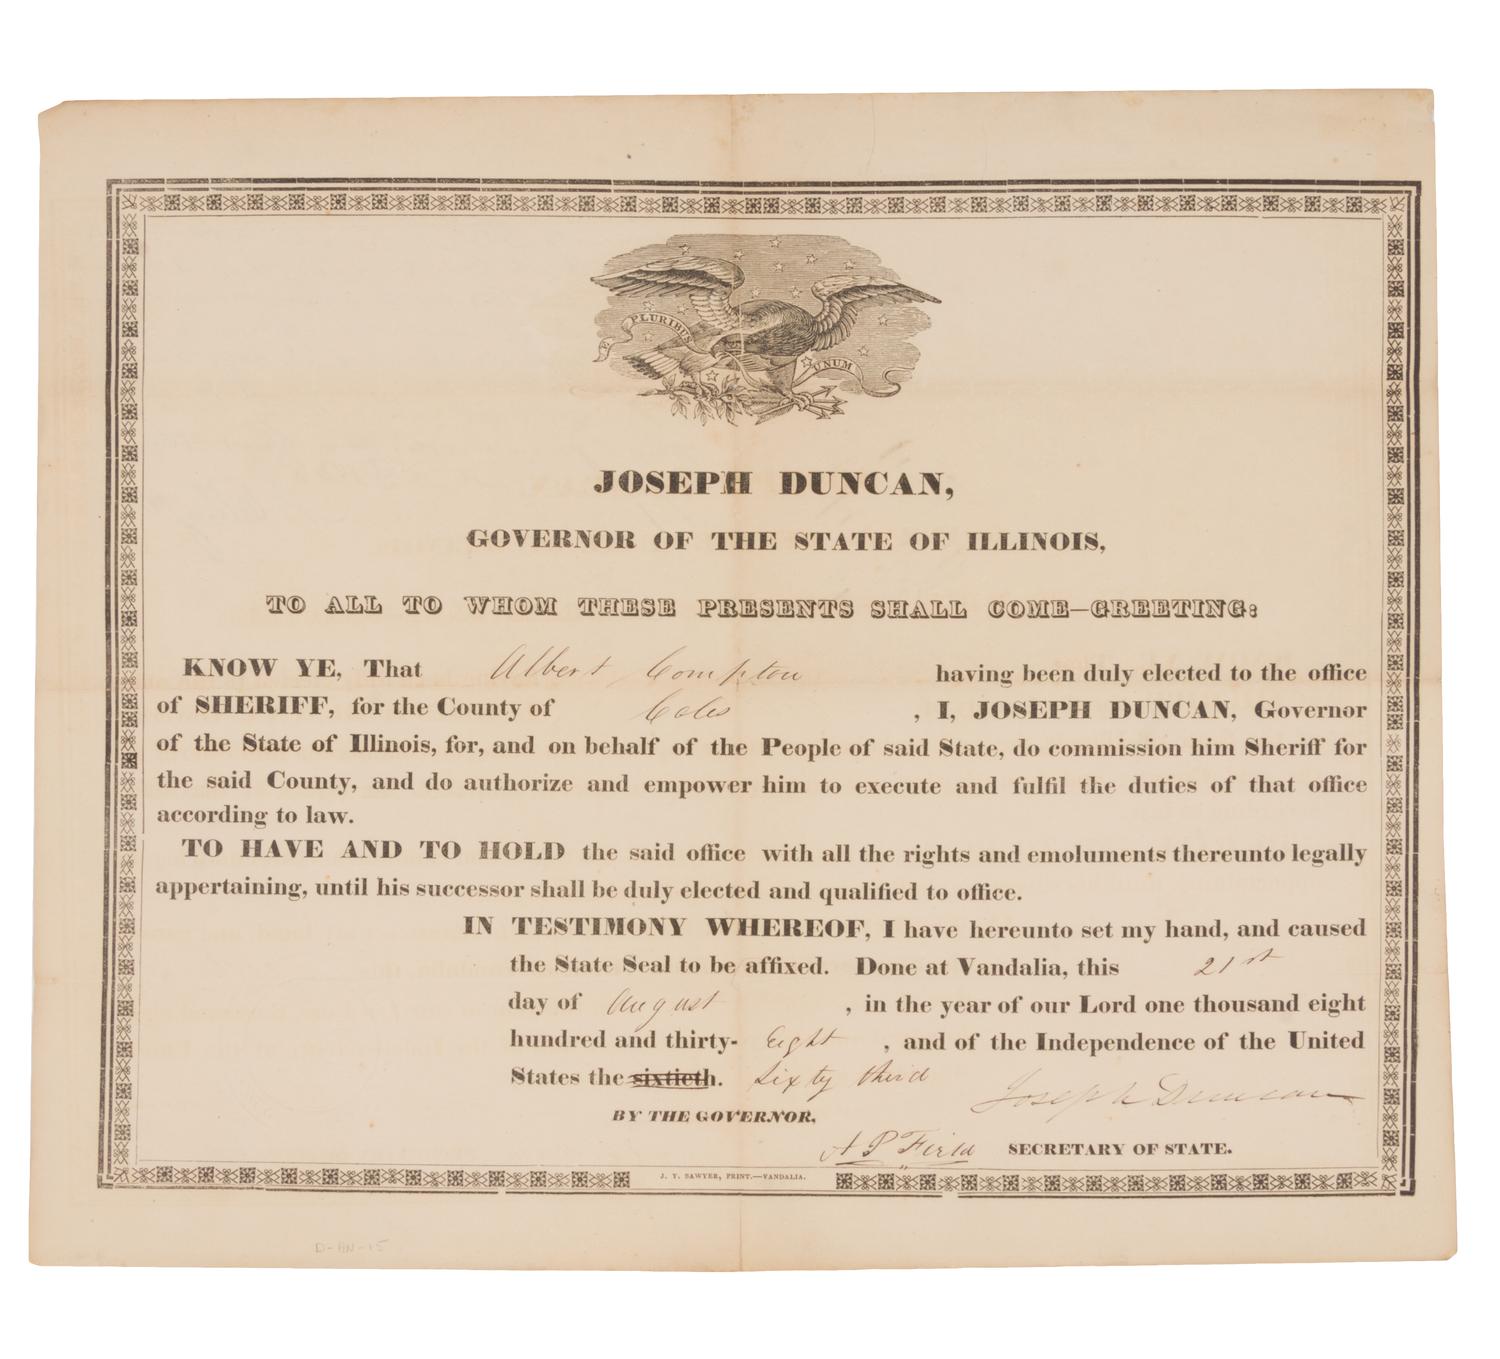 E PLURIBUS UNUM
JOSEPH DUNCAN,
GOVERNOR OF THE STATE OF ILLINOIS,
TO ALL TO WHOM THESE PRESENTS SHALL COME—GREETING:
KNOW YE, That Albert Compton having been duly elected to the office
of SHERIFF, for the County of Coles , I, JOSEPH DUNCAN, Governor
of the State of Illinois, for, and on behalf of the People of said State, do commission him Sheriff for
the said County, and do authorize and empower him to execute and fulfil the duties of that office
according to law.
TO HAVE AND TO HOLD the said office with all the rights and emoluments thereunto legally
appertaining, until his successor shall be duly elected and qualified to office.
IN TESTIMONY WHEREOF, I have hereunto set my hand, and caused
the State Seal to be affixed. Done at Vandalia, this 21st
day of August , in the year of our Lord one thousand eight
hundred and thirty- Eight , and of the Independence of the United
States the sixtieth. Sixty third
Joseph Duncan
BY THE GOVERNOR,
A P Field SECRETARY OF STATE.
J. Y. SAWYER, PRINT.—VANDALIA.
D-HN-15